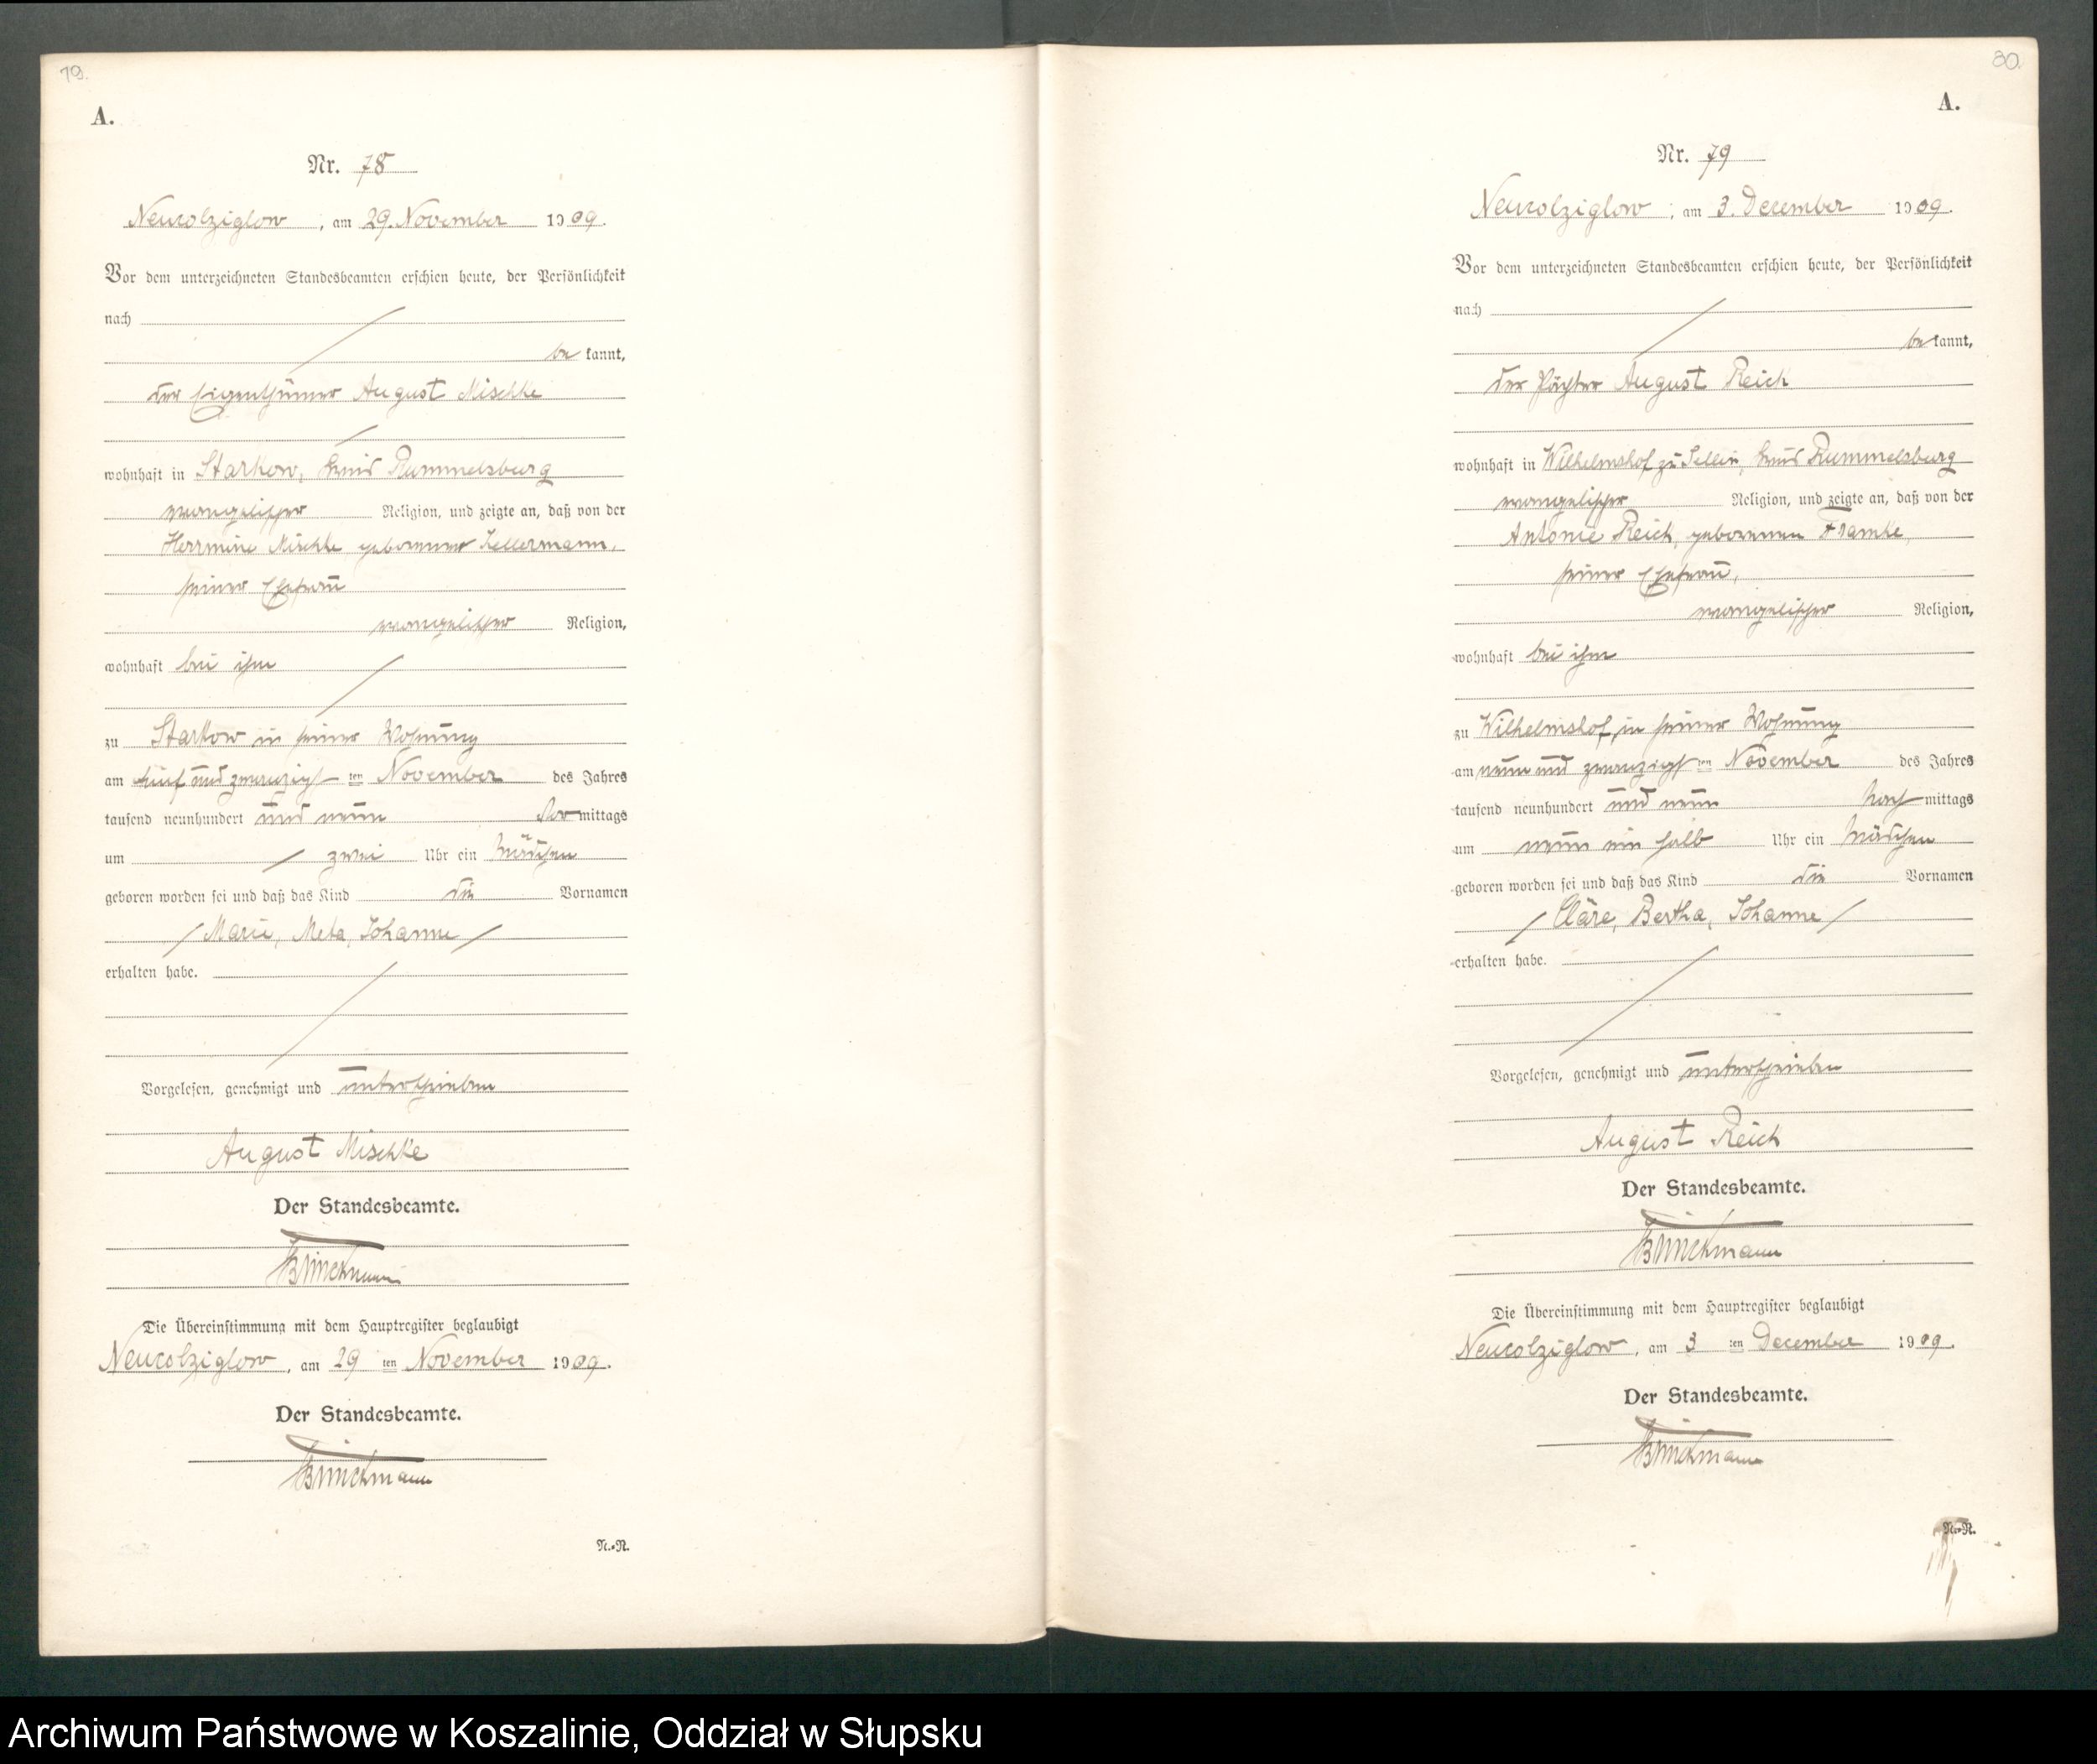 79.
A.
Nr. 78
Neucolziglow, am 29. November 1909.
Vor dem unterzeichneten Standesbeamten erschien heute, der Persönlichkeit
nach
be kannt,
der Eigenthümer August Mischke
wohnhaft in Starkow, Kreis Rummelsburg
evangelischer Religion, und zeigte an, daß von der
Hermine Mischke geborenen Kellermann,
seiner Ehefrau
evangelischer Religion,
wohnhaft bei ihm
zu Starkow in seiner Wohnung
am fünf und zwanzigsten November des Jahres
tausend neunhundert und neun Vormittags
um zwei Uhr ein Mädchen
geboren worden sei und daß das Kind die Vornamen
Marie, Meta, Johanne
erhalten habe.
Vorgelesen, genehmigt und unterschrieben
August Mischke
Der Standesbeamte.
Brinckmann
Die Übereinstimmung mit dem Hauptregister beglaubigt
Neucolziglow, am 29 ten November 1909.
Der Standesbeamte.
Brinckmann
N.-R.
80.
A.
Nr. 79
Neucolziglow, am 3. December 1909.
Vor dem unterzeichneten Standesbeamten erschien heute, der Persönlichkeit
nach
be kannt,
der Pächter August Reich
wohnhaft in Wilhelmshof zu Sellin, Kreis Rummelsburg
evangelischer Religion, und zeigte an, daß von der
Antonie Reich, geborenen Framke,
seiner Ehefrau,
evangelischer Religion,
wohnhaft bei ihm
zu Wilhelmshof, in seiner Wohnung
am neun und zwanzigsten November des Jahres
tausend neunhundert und neun Nachmittags
um neun ein halb Uhr ein Mädchen
geboren worden sei und daß das Kind die Vornamen
Cläre, Bertha, Johanne
erhalten habe.
Vorgelesen, genehmigt und unterschrieben
August Reich
Der Standesbeamte.
Brinckmann
Die Übereinstimmung mit dem Hauptregister beglaubigt
Neucolziglow, am 3 ten December 1909.
Der Standesbeamte.
Brinckmann
N.-R.
Archiwum Państwowe w Koszalinie, Oddział w Słupsku